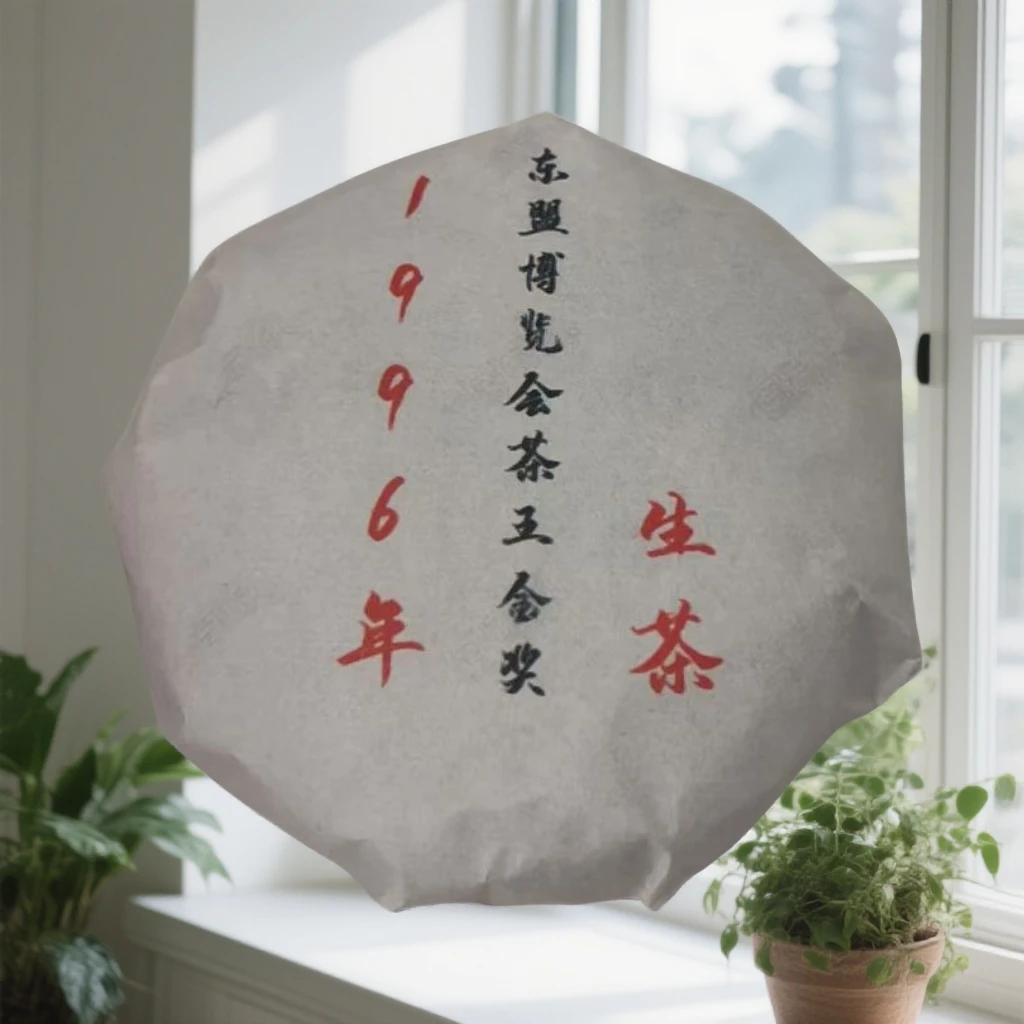 1996年
东盟博览会茶王金奖
生茶